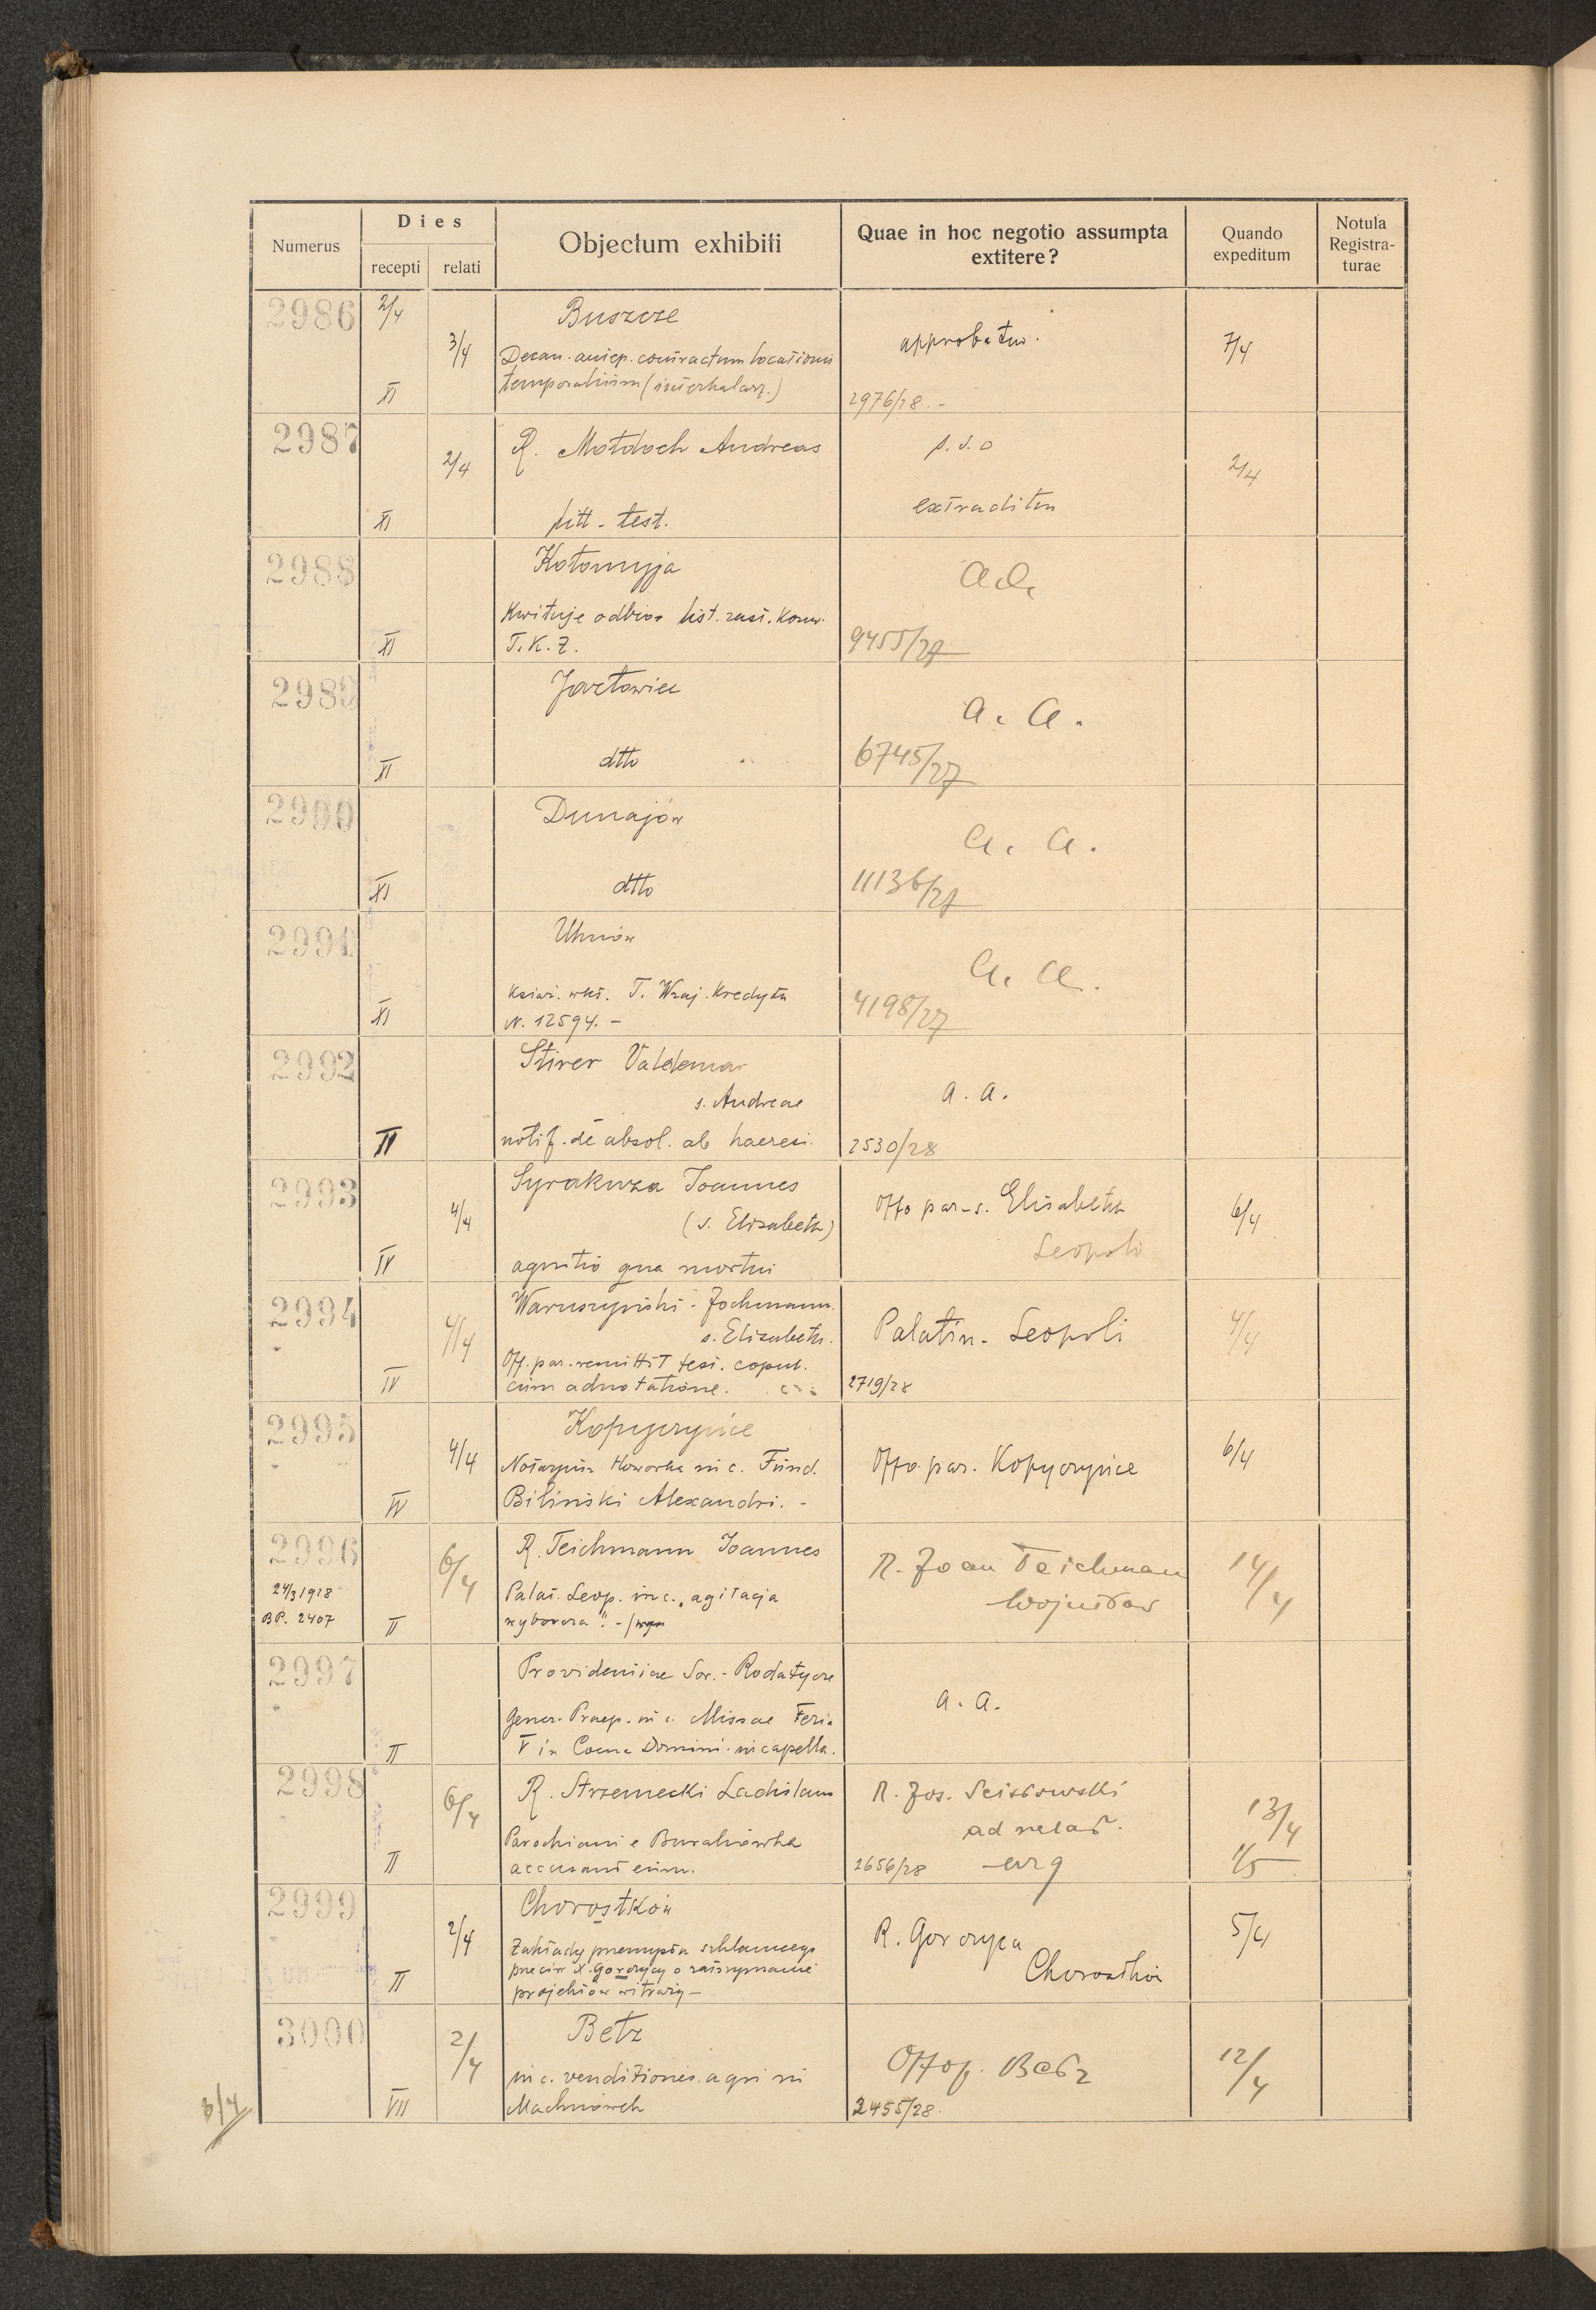 Numerus
Dies
recepti
relati
Objectum exhibiti
Quae in hoc negotio assumpta
extitere?
Quando
expeditum
Notula
Registra-
turae
2986
2/4
3/4
XI
Buszcze
Decan. contractum locationis
temporalium (interkalar.)
approbatur.
2976/28.-
7/4
2987
2/4
XI
R. Mołdoch Andreas
litt-test.
p. s. o
extraditur
2/4
2988
XI
Kołomyja
Kwituje odbiór list. zast. konw.
T. K. Z.
a. a.
9455/27
2989
XI
Jazłowiec
dtto
a. a.
6745/27
2990
XI
Dunajów
dtto
a. a.
11136/27
2991
XI
Uhnów
Książ. wkł. T. Wzaj. Kredytu
N. 12594.-
a. a.
4198/27
2992
II
Stirer Valdemar
s. Andreae
notif. de absol. ab haeresi.
a. a.
2530/28
2993
4/4
IV
Syrakuza Joannes
(s. Elisabeth)
agnitio qua mortui
Offo par. s. Elisabeth
Leopoli
6/4
2994
4/4
IV
s. Elisabeth.
Off. par. remittit test. copul.
cum adnotatione.
Palatin. Leopoli
2719/28
4/4
2995
4/4
IV
Kopyczyńce
in c. Fund.
Biliński Alexandri.-
Offo par. Kopyczyńce
6/4
2996
24/3 1928
BP. 2407
6/4
II
R. Teichmann Joannes
Palat. Leop. in c. „agitacja
wyborcza".-
R. Joan Teichman
Wojniłów
14/4
2997
II
Providentiae Sor.- Rodatycze
Gener. Praep. in c. Missae Feria
V in Coena Domini in capella.
a. a.
2998
6/4
II
R. Strzemecki Ladislaus
Parochiani e Burakówka
accusant eum.
R. Jos. Scisłowski
ad relat.
1656/28
urg
13/4
1/5
2999
2/4
II
Chorostków
Zakłady przemysłu szklannego
przeciw X. Gorczycy o zatrzymanie
projektów witraży-
R. Gorczyca
Chorostków
5/4
3000
2/4
VII
Bełz
in c. venditionis agri in
Machnówek
Offo p. Bełz
2455/28.
12/4
3/4